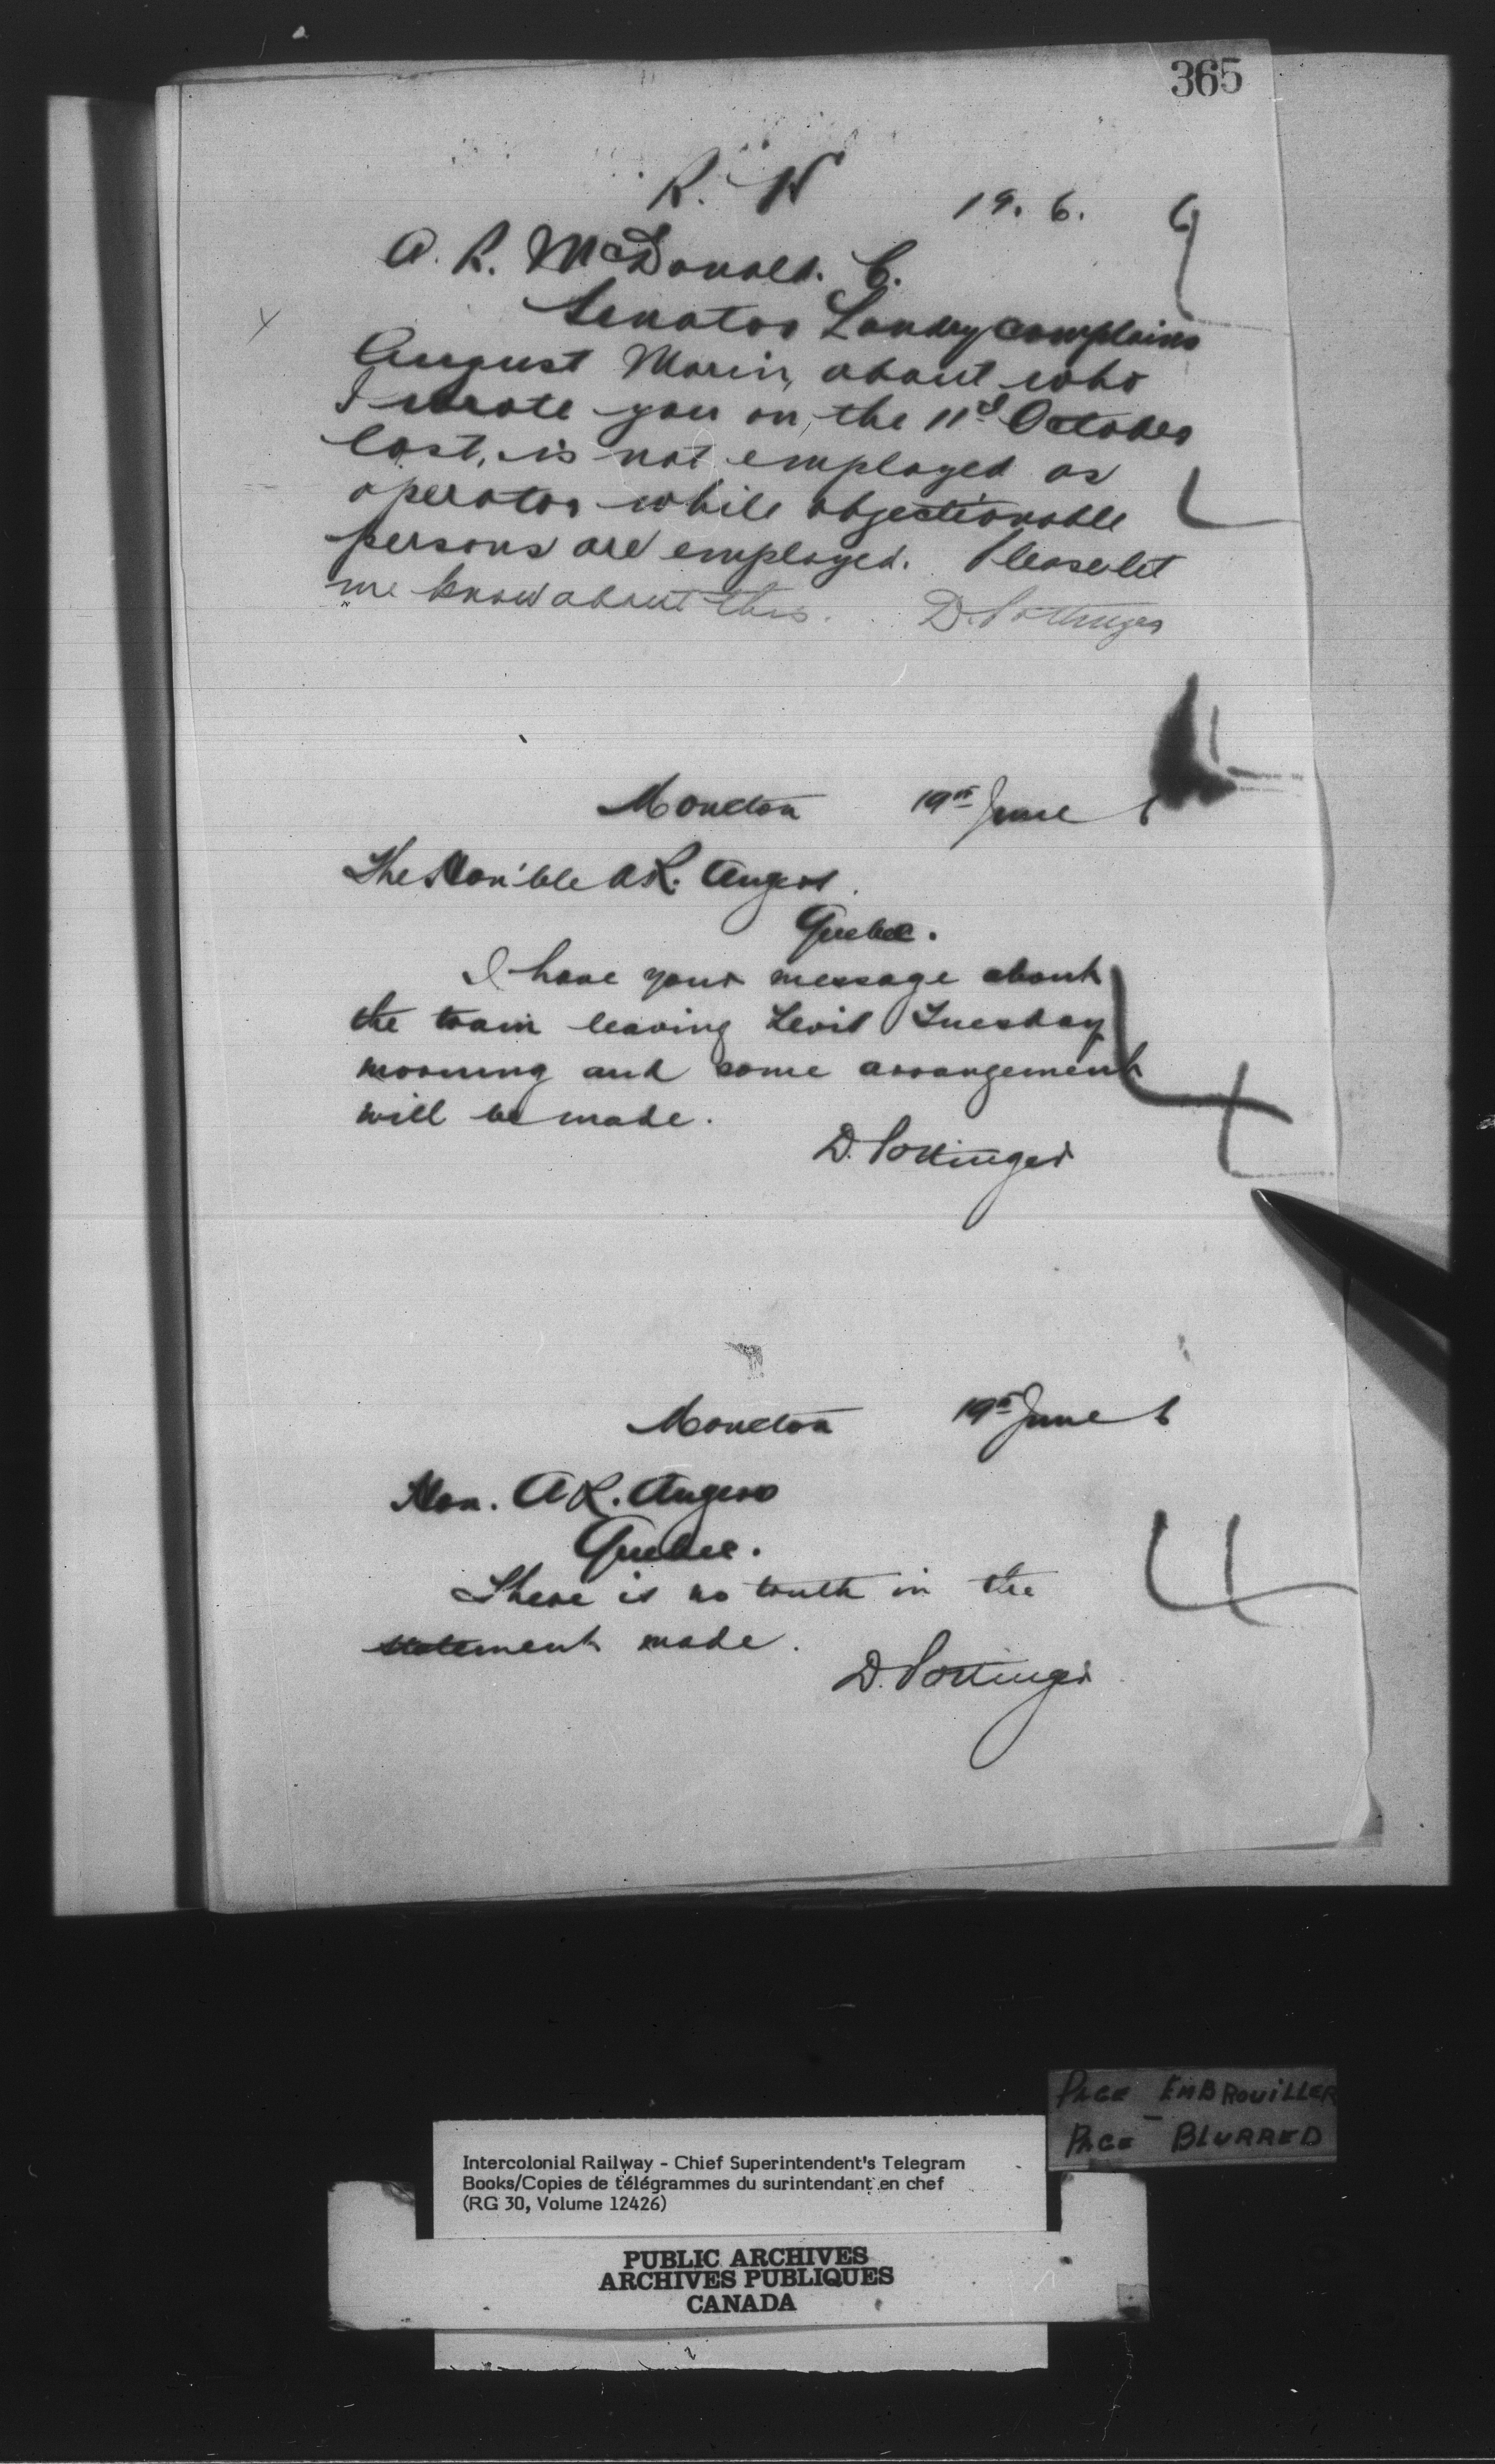 365
R. W
19. 6. 6
A. R. McDonald. C.
Senator Landry complains
August Morin, about who
I wrote you on the 11th October
last, is not employed as
operator while objectionable
persons are employed. Please let
me know about this. D. Pottinger
Moncton 19th June 6
The Hon'ble A R. Angers.
Quebec.
I have your message about
the train leaving Levis Tuesday
morning and some arrangement
will be made.
D. Pottinger
Moncton 19th June 6
Hon. A R. Angers
Quebec.
There is no truth in the
statement made.
D. Pottinger
PAGE EMBROUILLER
PAGE BLURRED
Intercolonial Railway - Chief Superintendent's Telegram
Books/Copies de télégrammes du surintendant en chef
(RG 30, Volume 12426)
PUBLIC ARCHIVES
ARCHIVES PUBLIQUES
CANADA